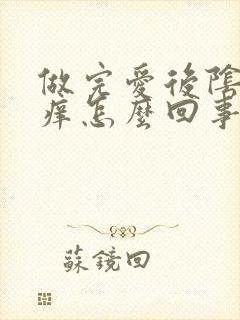 做完愛後陰
痒怎麼回事
蘇鏡回